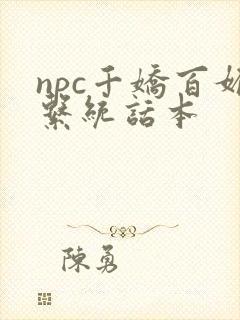 npc千嬌百媚
繫統話本
陳勇